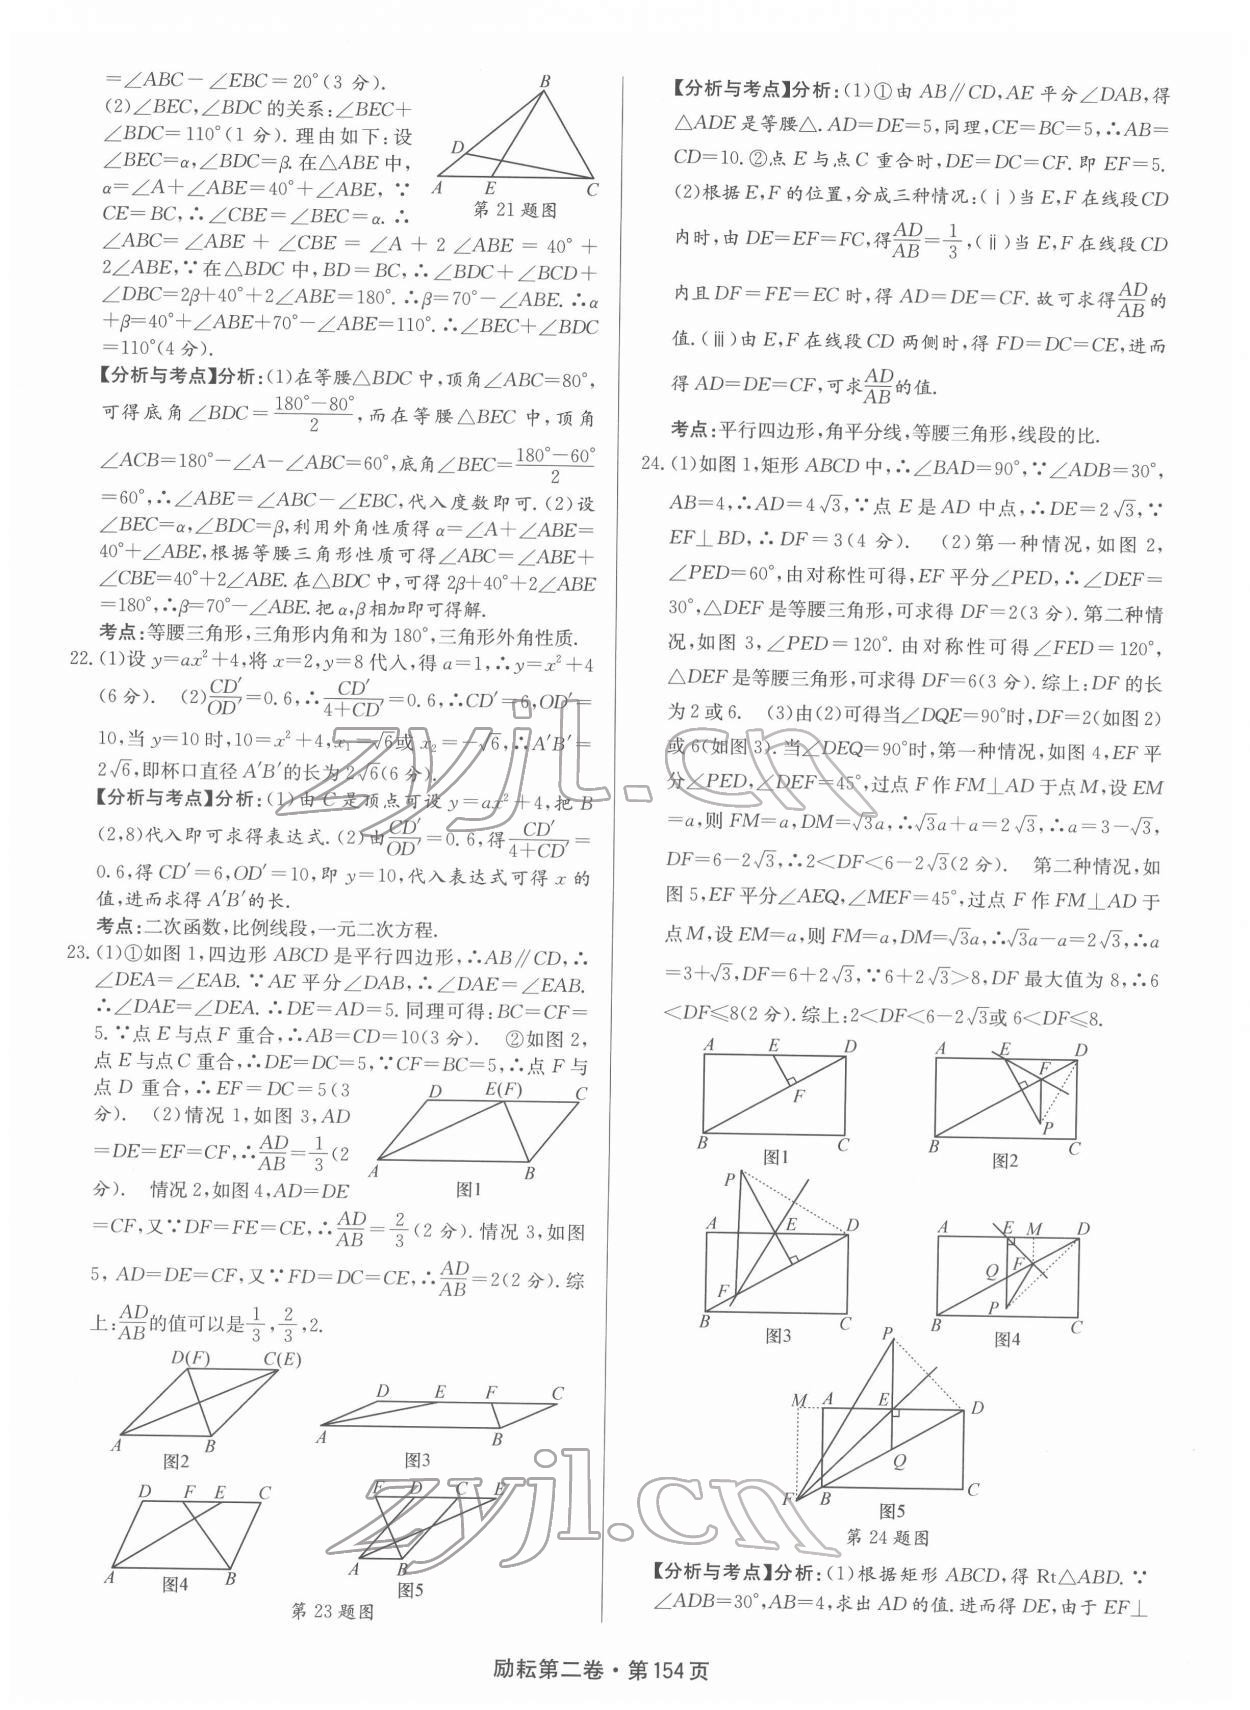 =∠ABC-∠EBC=20°(3 分).
(2)∠BEC,∠BDC 的关系:∠BEC+
∠BDC=110°(1 分). 理由如下:设
∠BEC=α,∠BDC=β. 在△ABE 中,
α=∠A+∠ABE=40°+∠ABE, ∵
CE=BC,∴∠CBE=∠BEC=α. ∴
∠ABC=∠ABE+∠CBE=∠A+2∠ABE=40°+
2∠ABE,∵在△BDC 中,BD=BC,∴∠BDC+∠BCD+
∠DBC=2β+40°+2∠ABE=180°. ∴β=70°-∠ABE. ∴α
+β=40°+∠ABE+70°-∠ABE=110°. ∴∠BEC+∠BDC
=110°(4 分).
B
D
A E C
第 21 题图
【分析与考点】分析:(1)在等腰△BDC 中,顶角∠ABC=80°,
可得底角∠BDC=(180°-80°)/2,而在等腰△BEC 中,顶角
∠ACB=180°-∠A-∠ABC=60°,底角∠BEC=(180°-60°)/2
=60°,∴∠ABE=∠ABC-∠EBC,代入度数即可. (2)设
∠BEC=α,∠BDC=β,利用外角性质得 α=∠A+∠ABE=
40°+∠ABE,根据等腰三角形性质可得∠ABC=∠ABE+
∠CBE=40°+2∠ABE. 在△BDC 中,可得 2β+40°+2∠ABE
=180°,∴β=70°-∠ABE. 把 α,β 相加即可得解.
考点:等腰三角形,三角形内角和为 180°,三角形外角性质.
22. (1)设 y=ax²+4,将 x=2,y=8 代入,得 a=1,∴y=x²+4
(6 分). (2)CD′/OD′=0.6,∴CD′/(4+CD′)=0.6,∴CD′=6,OD′=
10,当 y=10 时,10=x²+4,x₁=√6或 x₂=-√6,∴A′B′=
2√6,即杯口直径 A′B′的长为 2√6(6 分).
【分析与考点】分析:(1)由 C 是顶点可设 y=ax²+4,把 B
(2,8)代入即可求得表达式. (2)由CD′/OD′=0.6,得CD′/(4+CD′)=
0.6,得 CD′=6,OD′=10,即 y=10,代入表达式可得 x 的
值,进而求得 A′B′的长.
考点:二次函数,比例线段,一元二次方程.
23. (1)①如图 1,四边形 ABCD 是平行四边形,∴AB∥CD,∴
∠DEA=∠EAB. ∵AE 平分∠DAB,∴∠DAE=∠EAB.
∴∠DAE=∠DEA. ∴DE=AD=5. 同理可得:BC=CF=
5. ∵点 E 与点 F 重合,∴AB=CD=10(3 分). ②如图 2,
点 E 与点 C 重合,∴DE=DC=5,∵CF=BC=5,∴点 F 与
点 D 重合,∴EF=DC=5(3
分). (2)情况 1,如图 3,AD
=DE=EF=CF,∴AD/AB=1/3(2
分). 情况 2,如图 4,AD=DE
=CF,又∵DF=FE=CE,∴AD/AB=2/3(2 分). 情况 3,如图
5, AD=DE=CF,又∵FD=DC=CE,∴AD/AB=2(2 分). 综
上:AD/AB的值可以是1/3,2/3,2.
D E(F) C
A B
图1
D(F) C(E)
A B
图2
D E F C
A B
图3
D F E C
A B
图4
F D C E
A B
图5
第 23 题图
【分析与考点】分析:(1)①由 AB∥CD,AE 平分∠DAB,得
△ADE 是等腰△. AD=DE=5,同理,CE=BC=5,∴AB=
CD=10. ②点 E 与点 C 重合时,DE=DC=CF. 即 EF=5.
(2)根据 E,F 的位置,分成三种情况:(ⅰ)当 E,F 在线段 CD
内时,由 DE=EF=FC,得AD/AB=1/3,(ⅱ)当 E,F 在线段 CD
内且 DF=FE=EC 时,得 AD=DE=CF. 故可求得AD/AB的
值. (ⅲ)由 E,F 在线段 CD 两侧时,得 FD=DC=CE,进而
得 AD=DE=CF,可求AD/AB的值.
考点:平行四边形,角平分线,等腰三角形,线段的比.
24. (1)如图 1,矩形 ABCD 中,∴∠BAD=90°,∵∠ADB=30°,
AB=4,∴AD=4√3,∵点 E 是 AD 中点,∴DE=2√3,∵
EF⊥BD,∴DF=3(4 分). (2)第一种情况,如图 2,
∠PED=60°,由对称性可得,EF 平分∠PED,∴∠DEF=
30°,△DEF 是等腰三角形,可求得 DF=2(3 分). 第二种情
况,如图 3,∠PED=120°. 由对称性可得∠FED=120°,
△DEF 是等腰三角形,可求得 DF=6(3 分). 综上:DF 的长
为 2 或 6. (3)由(2)可得当∠DQE=90°时,DF=2(如图 2)
或 6(如图 3). 当∠DEQ=90°时,第一种情况,如图 4,EF 平
分∠PED,∠DEF=45°,过点 F 作 FM⊥AD 于点 M,设 EM
=a,则 FM=a,DM=√3a,∴√3a+a=2√3,∴a=3-√3,
DF=6-2√3,∴2<DF<6-2√3(2 分). 第二种情况,如
图 5,EF 平分∠AEQ,∠MEF=45°,过点 F 作 FM⊥AD 于
点 M,设 EM=a,则 FM=a,DM=√3a,∴√3a-a=2√3,∴a
=3+√3,DF=6+2√3,∵6+2√3>8,DF 最大值为 8,∴6
<DF≤8(2 分). 综上:2<DF<6-2√3或 6<DF≤8.
A E D
F
B C
图1
A E D
F
P
B C
图2
P
A E D
F
B C
图3
A E M D
Q F
P
B C
图4
P
M A E D
Q
F B C
图5
第 24 题图
【分析与考点】分析:(1)根据矩形 ABCD,得 Rt△ABD. ∵
∠ADB=30°,AB=4,求出 AD 的值. 进而得 DE,由于 EF⊥
励耘第二卷·第 154 页
zyjl.cn
zyjl.cn